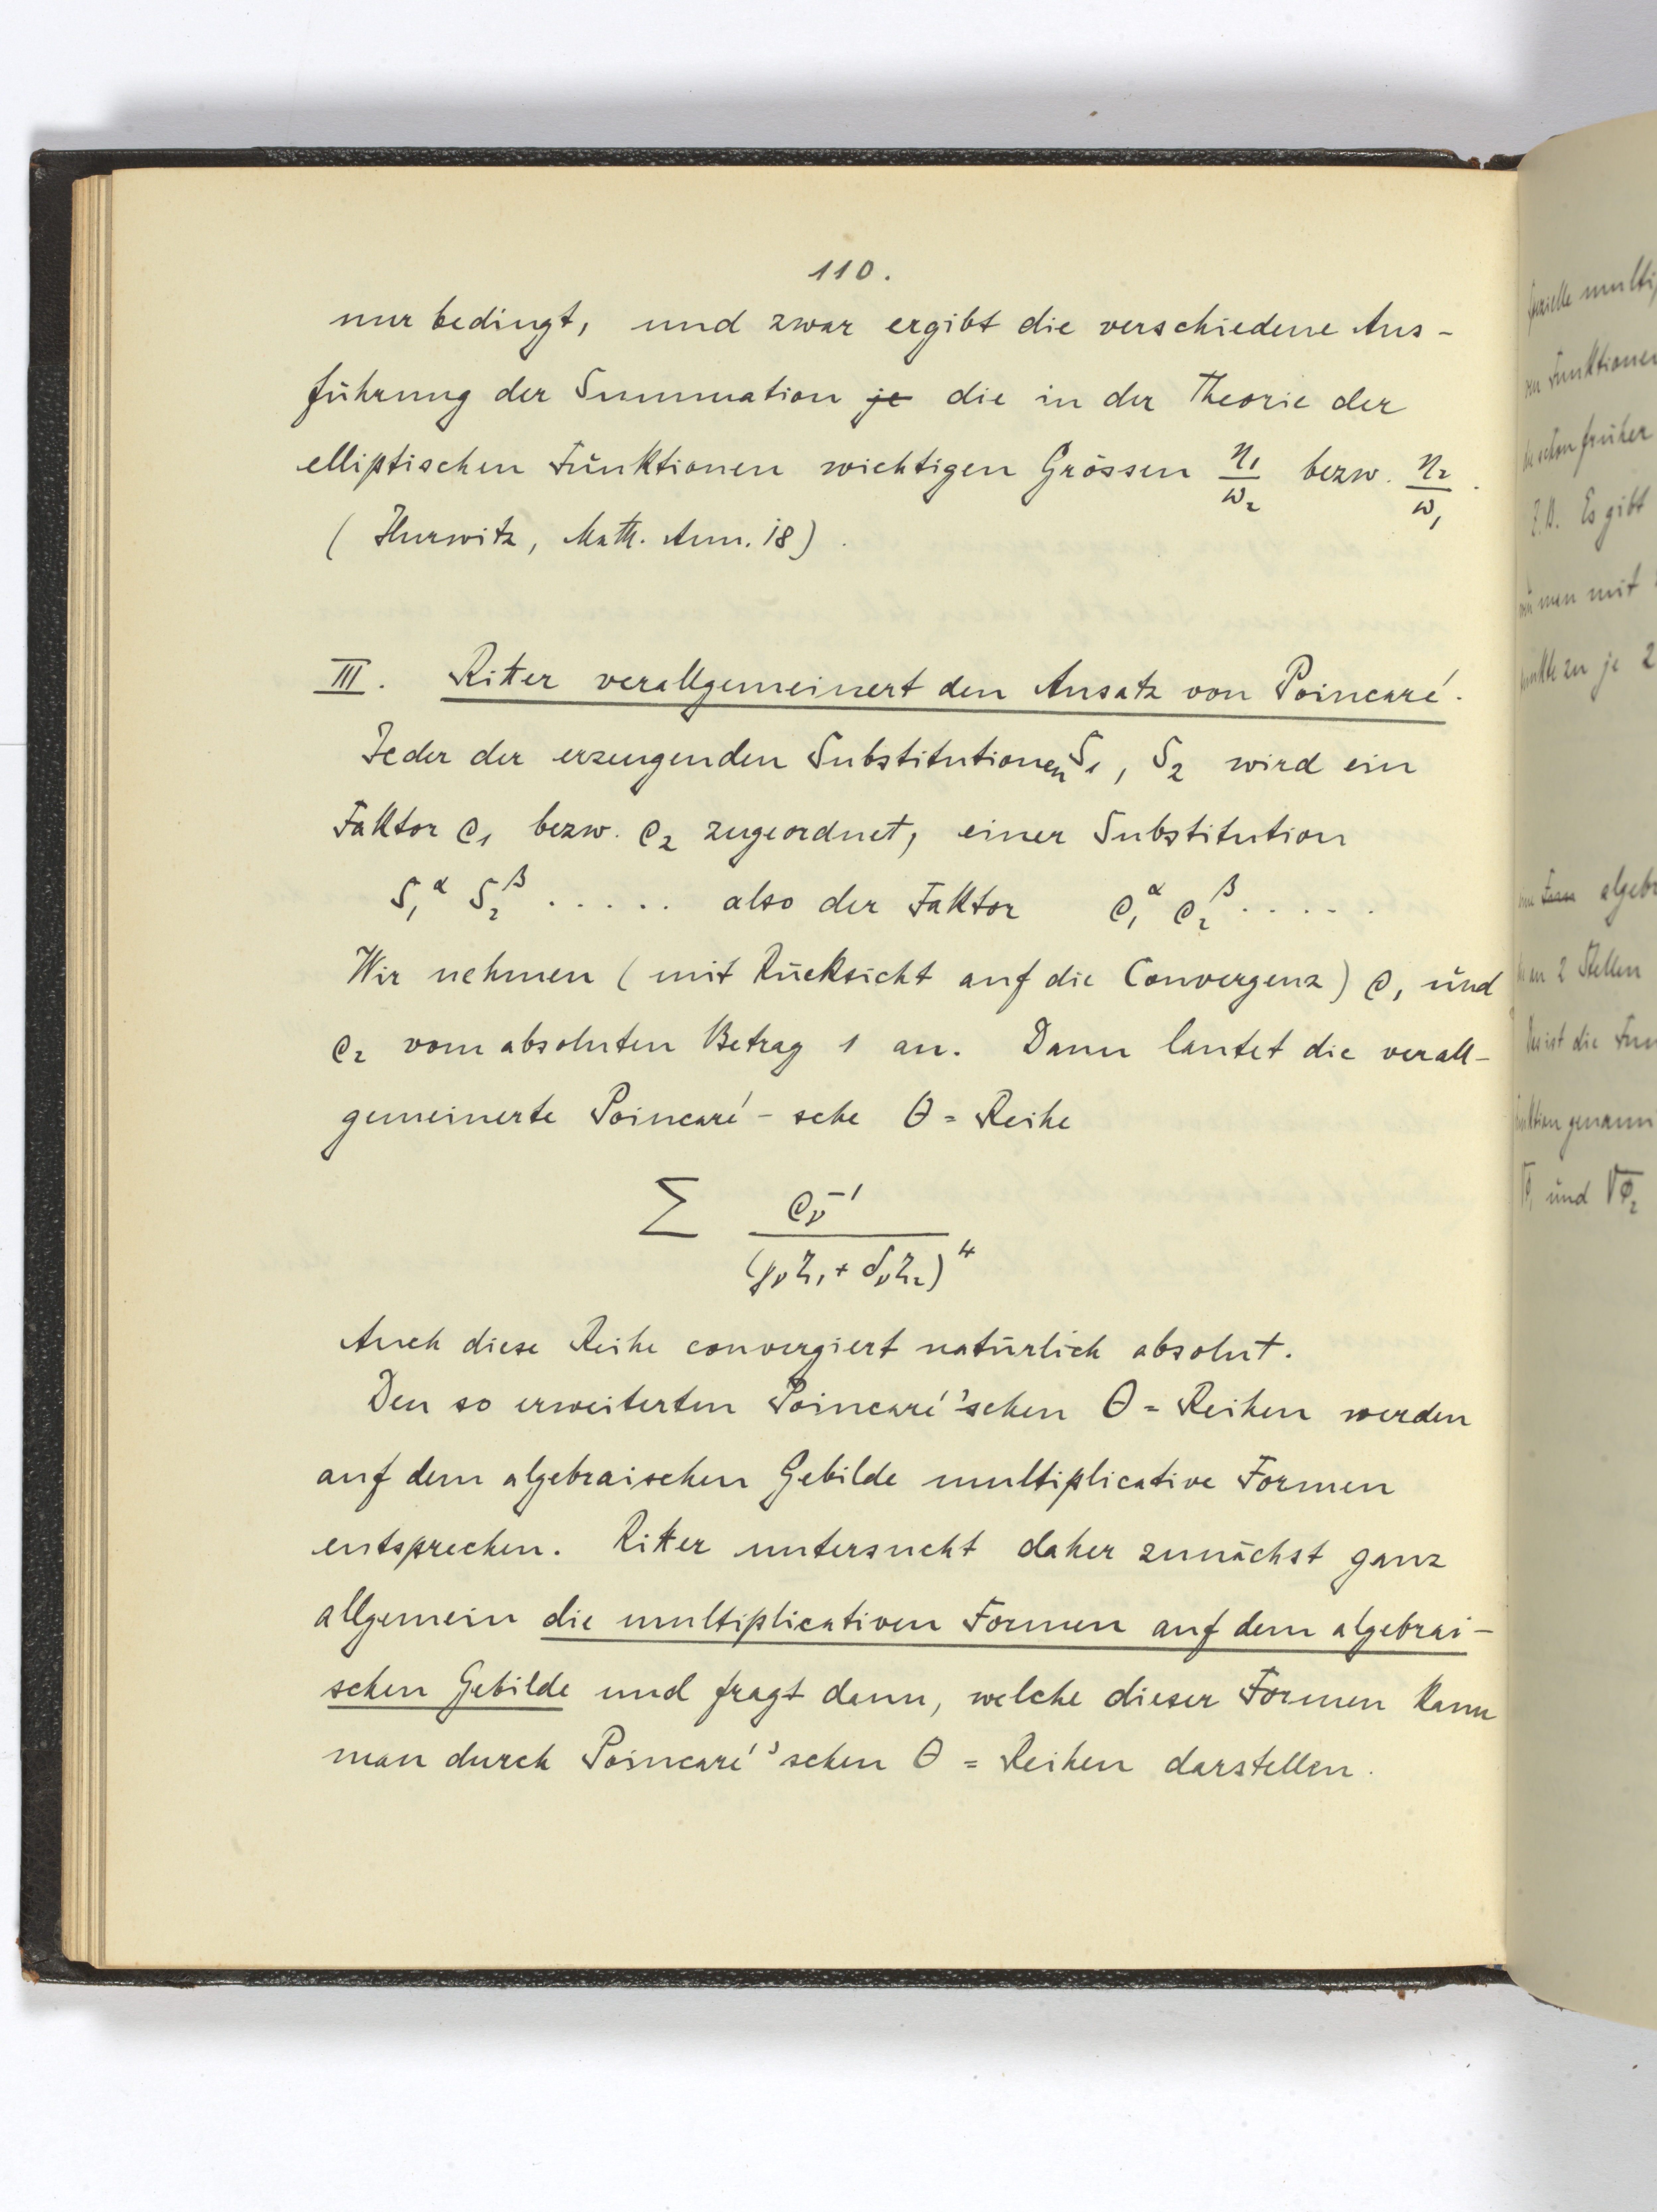 110.
nur bedingt, und zwar ergibt die verschiedene Aus-
führung der Summation je die in der Theorie der
elliptischen Funktionen wichtigen Grössen η₁/ω₂ bezw. η₂/ω₁.
(Hurwitz, Math. Ann. 18).
III. Ritter verallgemeinert den Ansatz von Poincaré.
Jeder der erzeugenden Substitutionen S₁, S₂ wird ein
Faktor ϱ₁ bezw. ϱ₂ zugeordnet, einer Substitution
S₁^α S₂^β ..... also der Faktor ϱ₁^α ϱ₂^β .....
Wir nehmen (mit Rücksicht auf die Convergenz) ϱ₁ und
ϱ₂ vom absoluten Betrag 1 an. Dann lautet die verall-
gemeinerte Poincaré-sche Θ = Reihe
∑ ϱ_ν^{-1} / (γ_ν ζ₁ + δ_ν ζ₂)^4
Auch diese Reihe convergiert natürlich absolut.
Den so erweiterten Poincaré'schen Θ = Reihen werden
auf dem algebraischen Gebilde multiplicative Formen
entsprechen. Ritter untersucht daher zunächst ganz
allgemein die multiplicativen Formen auf dem algebrai-
schen Gebilde und fragt dann, welche dieser Formen kann
man durch Poincaré'schen Θ = Reihen darstellen.
Funktionen
schon früher
Z.B. Es gibt
men mit
zu je 2
algebr
an 2 Stellen
ist die Fun
genann
und √φ₂